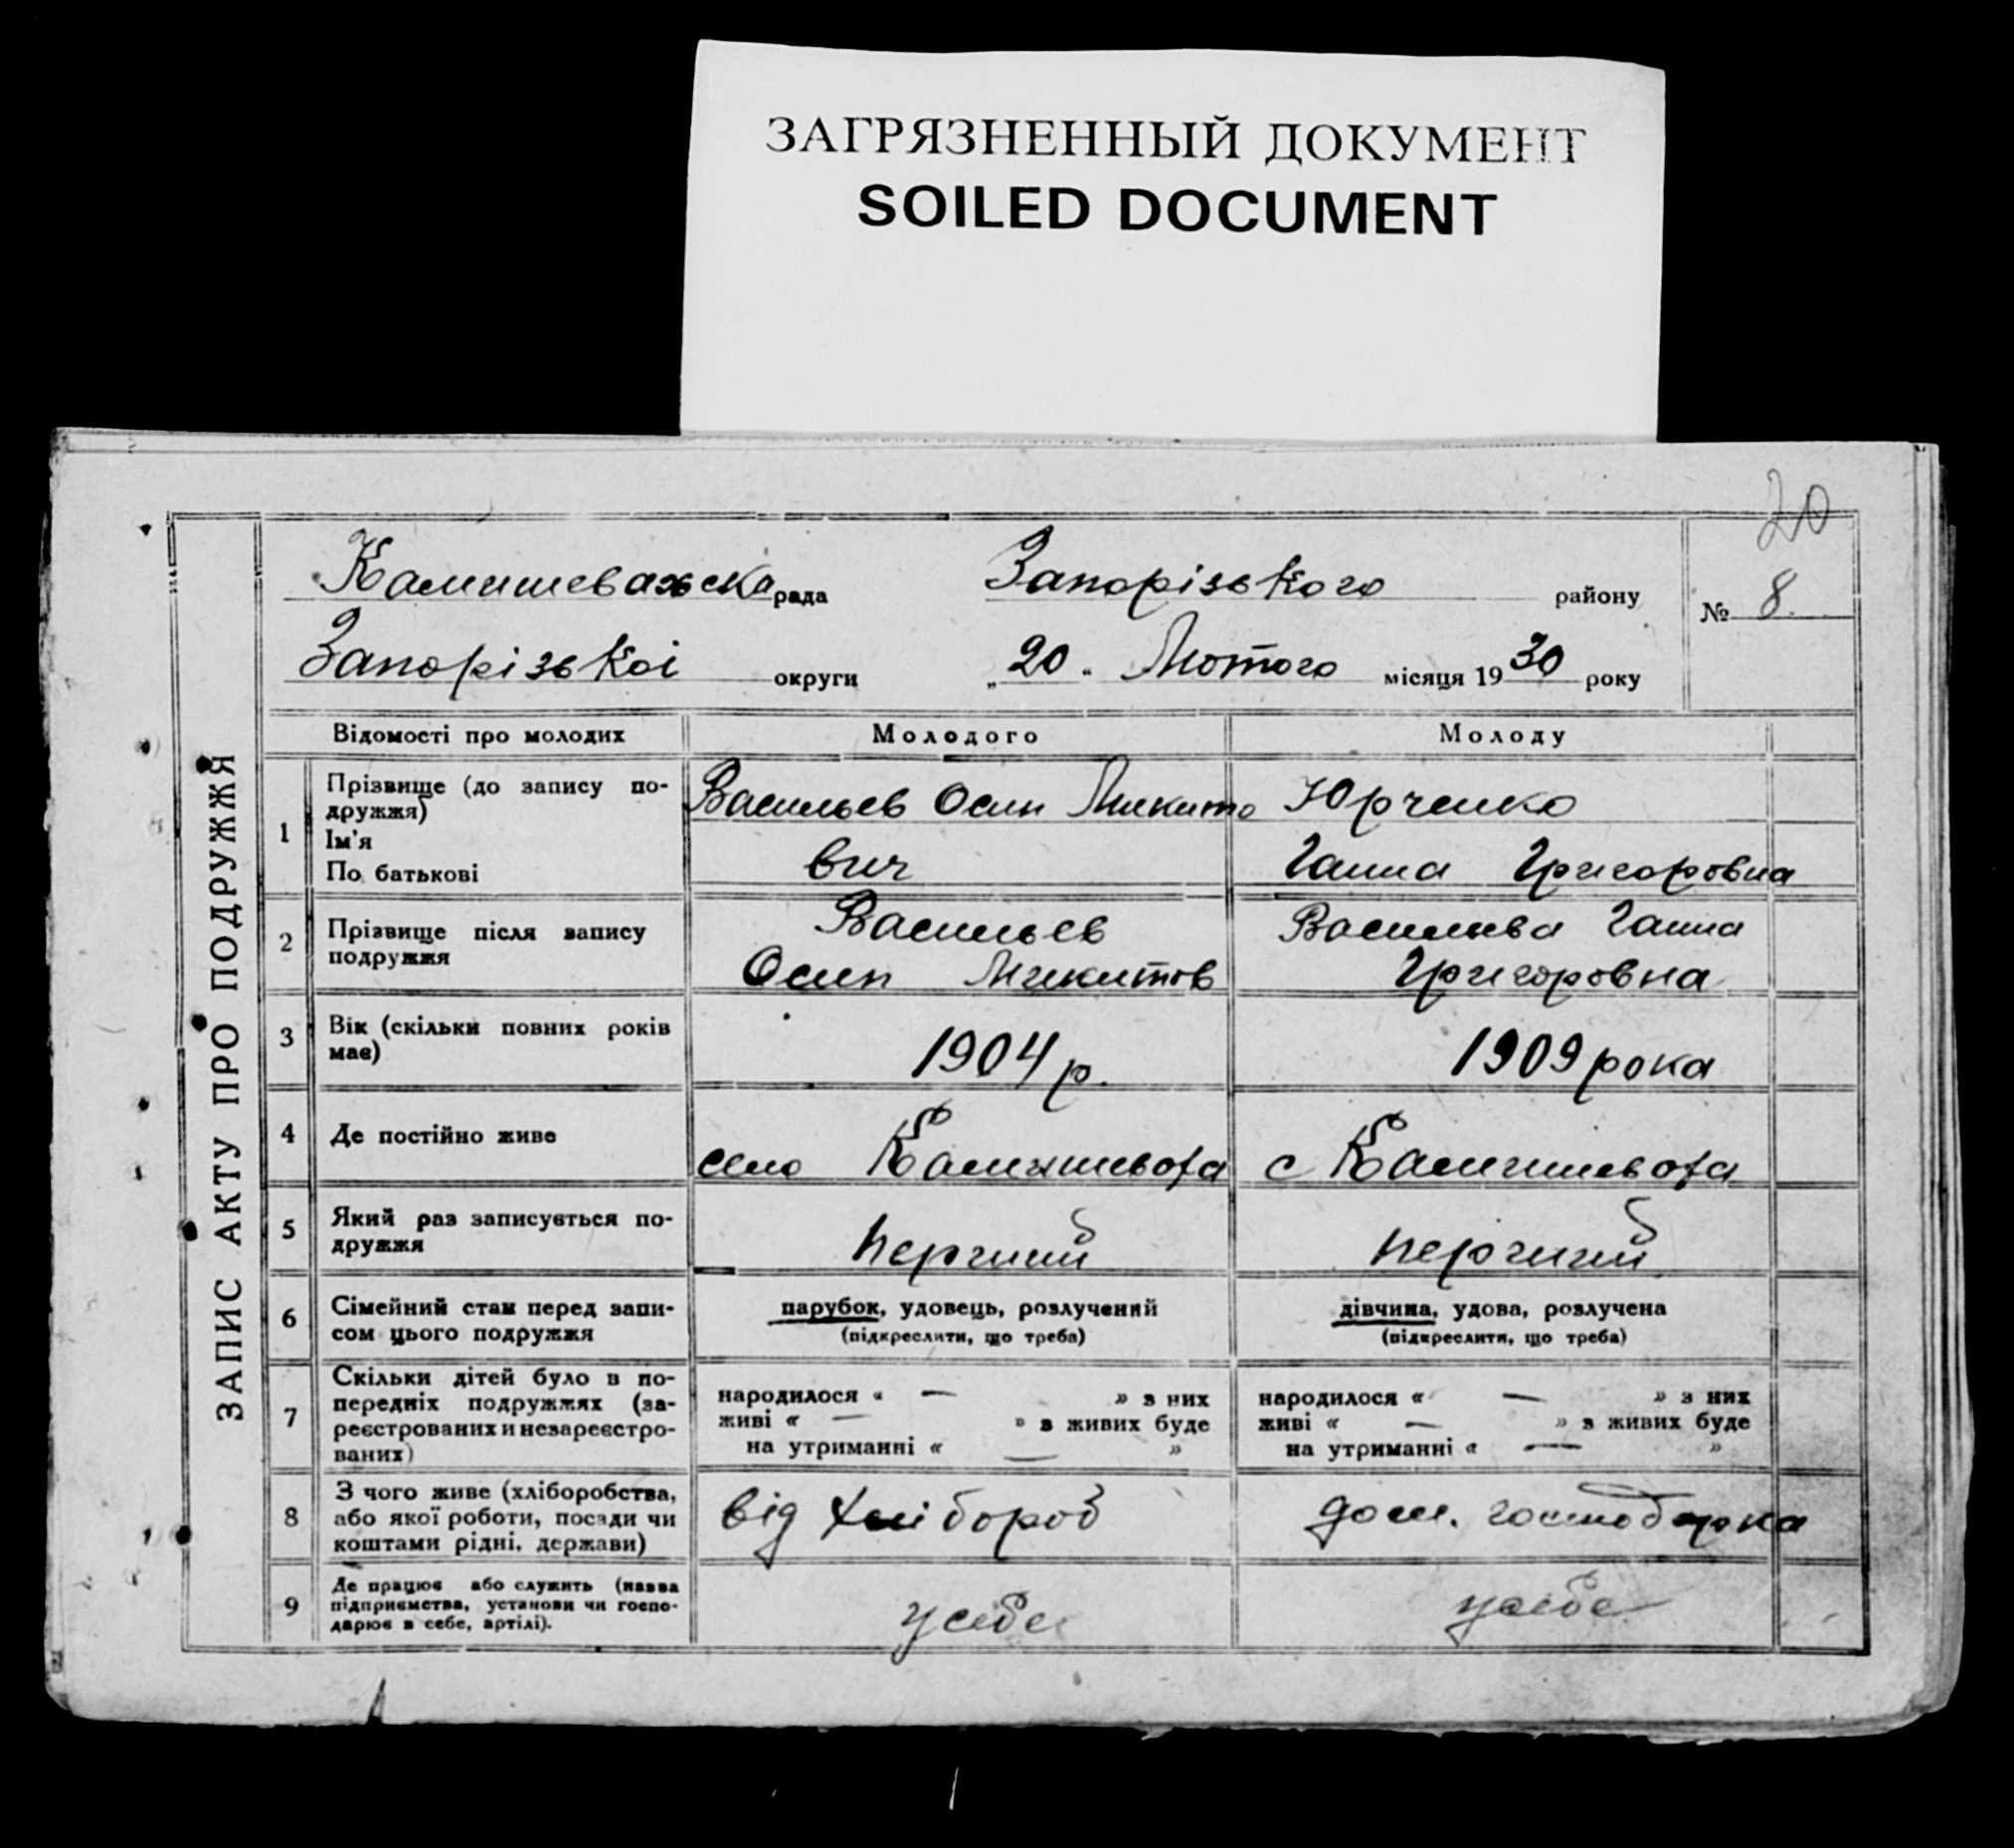 ЗАГРЯЗНЕННЫЙ ДОКУМЕНТ
SOILED DOCUMENT
20
ЗАПИС АКТУ ПРО ПОДРУЖЖЯ
Камишеважска рада Запорізького району № 8.
Запорізькоі округи „20" Лютого місяця 1930 року
Відомості про молодих Молодого Молоду
1 Прізвище (до запису по-
дружжя) Васильев Осип Микито Юрченко
Ім'я
По батькові вич Ганна Григоровна
2 Прізвище після запису Васильев Васильева Ганна
подружжя Осип Микитов Григоровна
3 Вік (скільки повних років
має) 1904 р. 1909 рока
4 Де постійно живе село Камишевата с Камишевата
5 Який раз записується по-
дружжя перчий перчий
6 Сімейний стан перед запи- парубок, удовець, розлучений дівчина, удова, розлучена
сом цього подружжя (підкреслити, що треба) (підкреслити, що треба)
7 Скільки дітей було в по-
передніх подружжях (за- народилося « — » з них народилося « — » з них
реєстрованих и незареєстро- живі « — » з живих буде живі « — » з живих буде
ваних) на утриманні « — » на утриманні « — »
8 З чого живе (хліборобства,
або якої роботи, посади чи від хлібороб дом. господарка
коштами рідні, держави)
9 Де працює або служить (назва
підприємства, установи чи госпо- усебе усебе
дарює в себе, артілі).